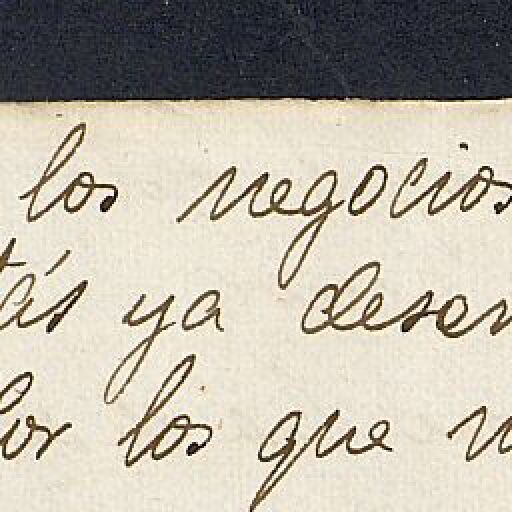 los negocios
tás ya desen
or los que n